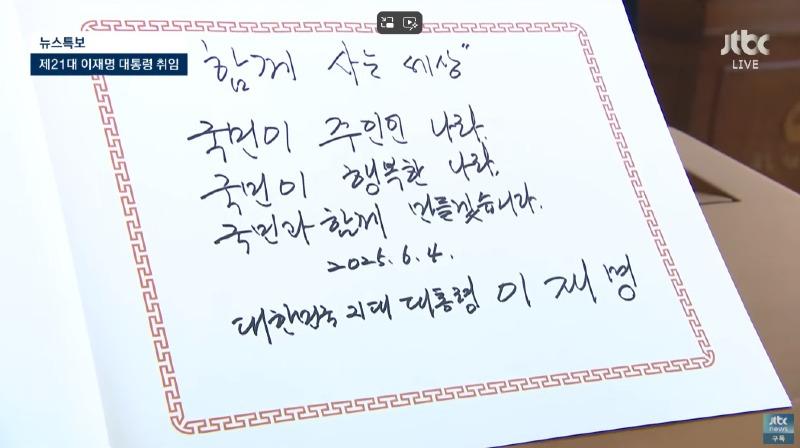 뉴스특보
제21대 이재명 대통령 취임
jtbc
LIVE
함께 사는 세상"
국민이 주인인 나라,
국민이 행복한 나라,
국민과 함께 만들겠습니다.
2025. 6. 4.
대한민국 21대 대통령 이재명
jtbc
news
구독